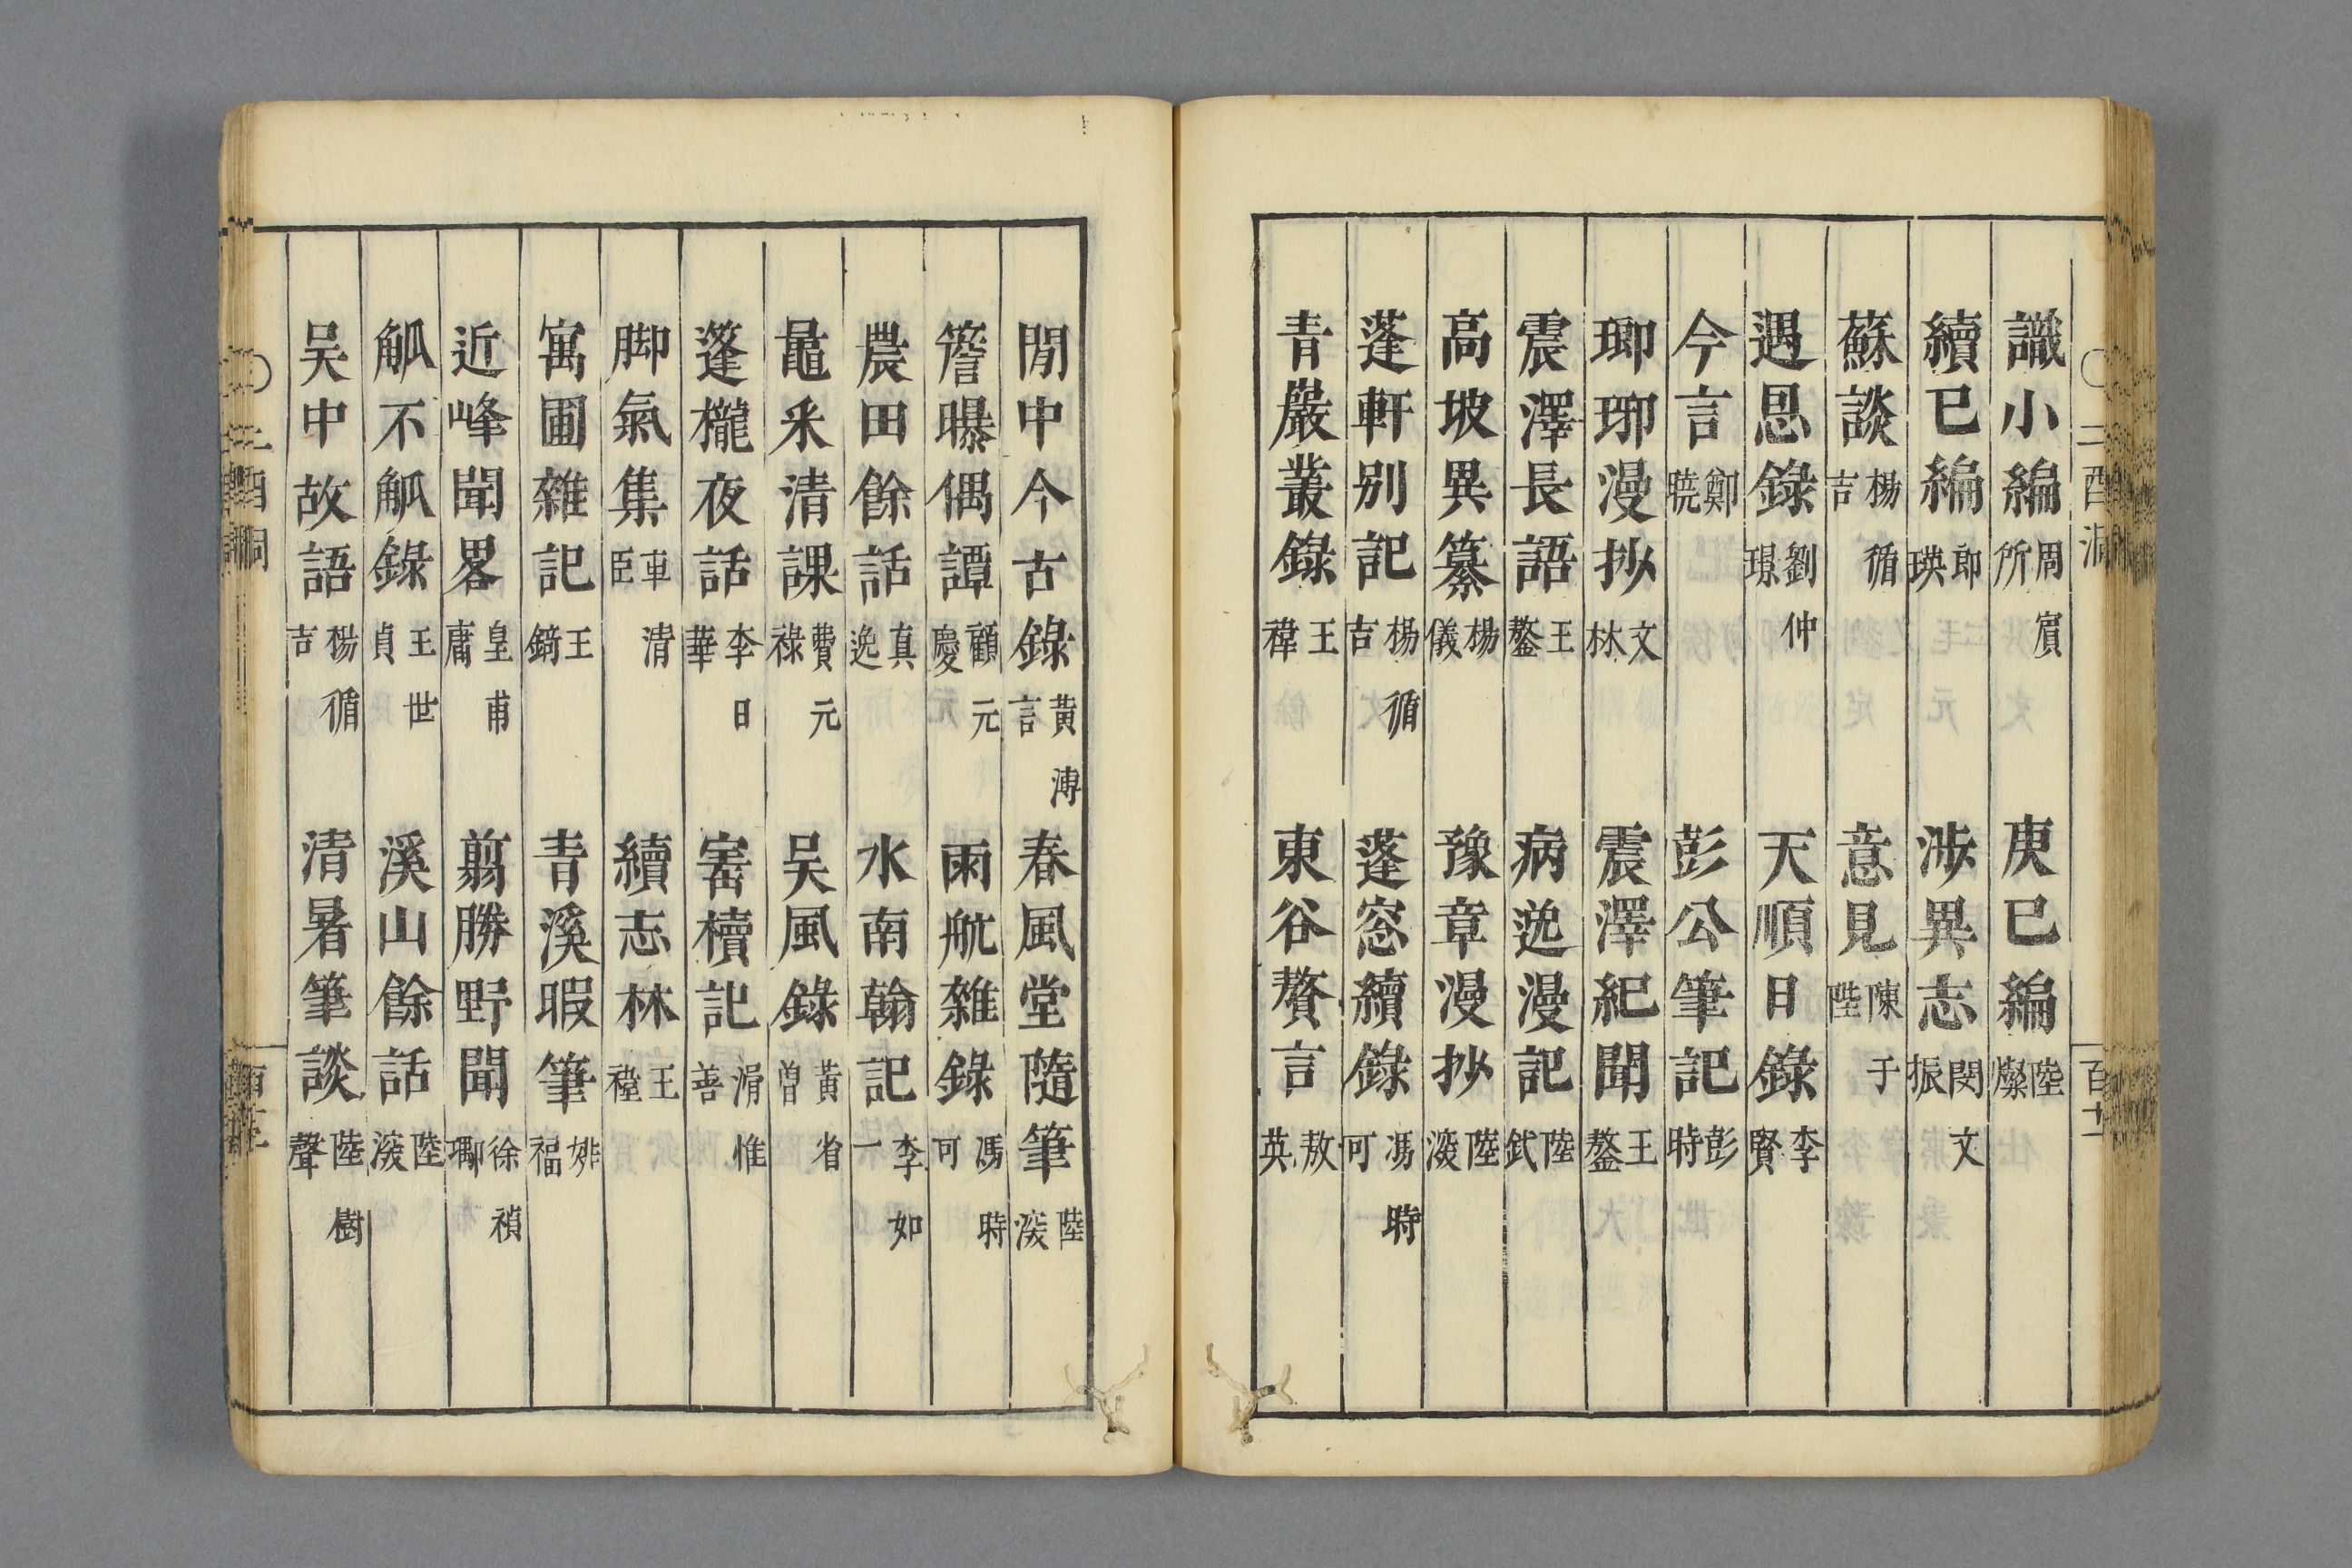 識小編周賓所 庚巳編陸燦
續巳編郎瑛 涉異志閔文振
蘇談楊循吉 意見陳于陛
遇恩錄劉仲璟 天順日錄李賢
今言鄭曉 彭公筆記彭時
瑯琊漫抄文林 震澤紀聞王鏊
震澤長語王鏊 病逸漫記陸釴
高坡異纂楊儀 豫章漫抄陸深
蓬軒别記楊循吉 蓬窓續錄馮時可
青巖叢錄王褘 東谷贅言敖英
閒中今古錄黃溥言 春風堂隨筆陸深
簷曝偶譚顧元慶 雨航雜錄馮時可
農田餘話真逸 水南翰記李如一
鼂采清課費元祿 吳風錄黃省曾
篷櫳夜話李日華 寱櫝記滑惟善
脚氣集車清臣 續志林王褘
寓圃雜記王錡 青溪暇筆姚福
近峰聞畧皇甫庸 翦勝野聞徐禎卿
觚不觚錄王世貞 溪山餘話陸深
吳中故語楊循吉 清暑筆談陸樹聲
二酉洞